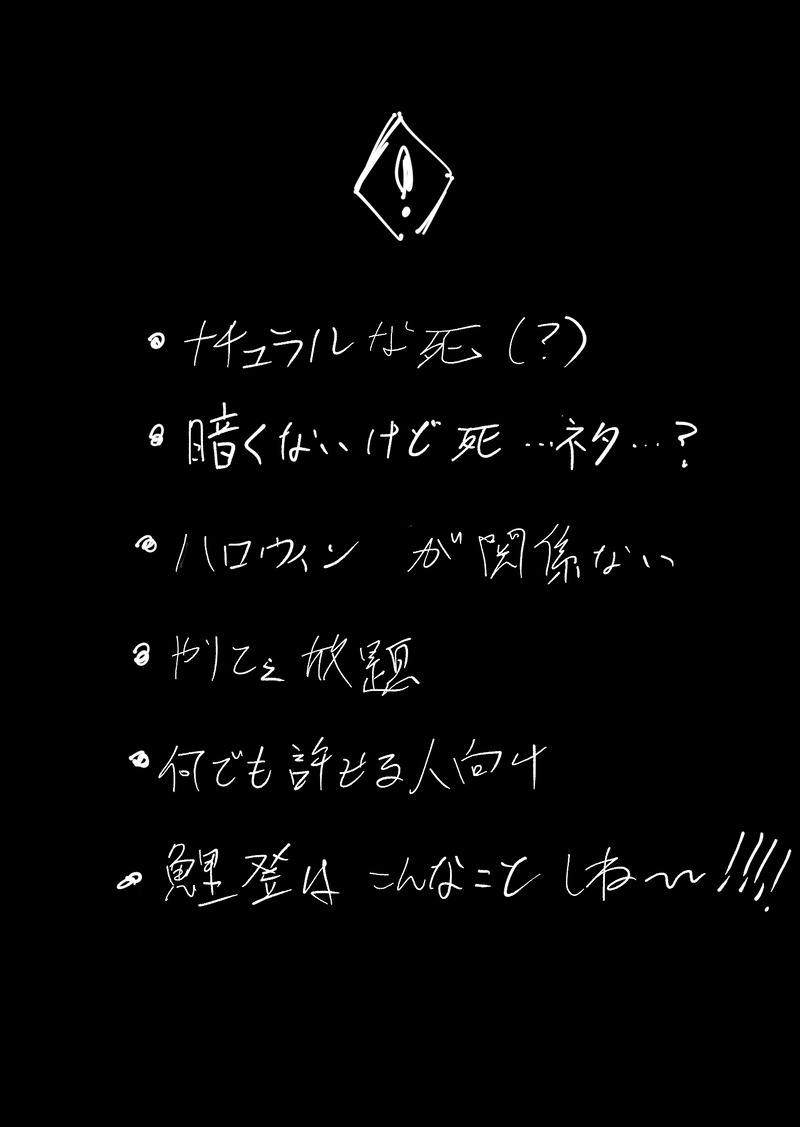 !
• ナチュラルな死(?)
• 暗くないけど死…ネタ…?
• ハロウィン が関係ない
• やりてぇ放題
• 何でも許せる人向け
• 鯉登はこんなことしね〜〜!!!!